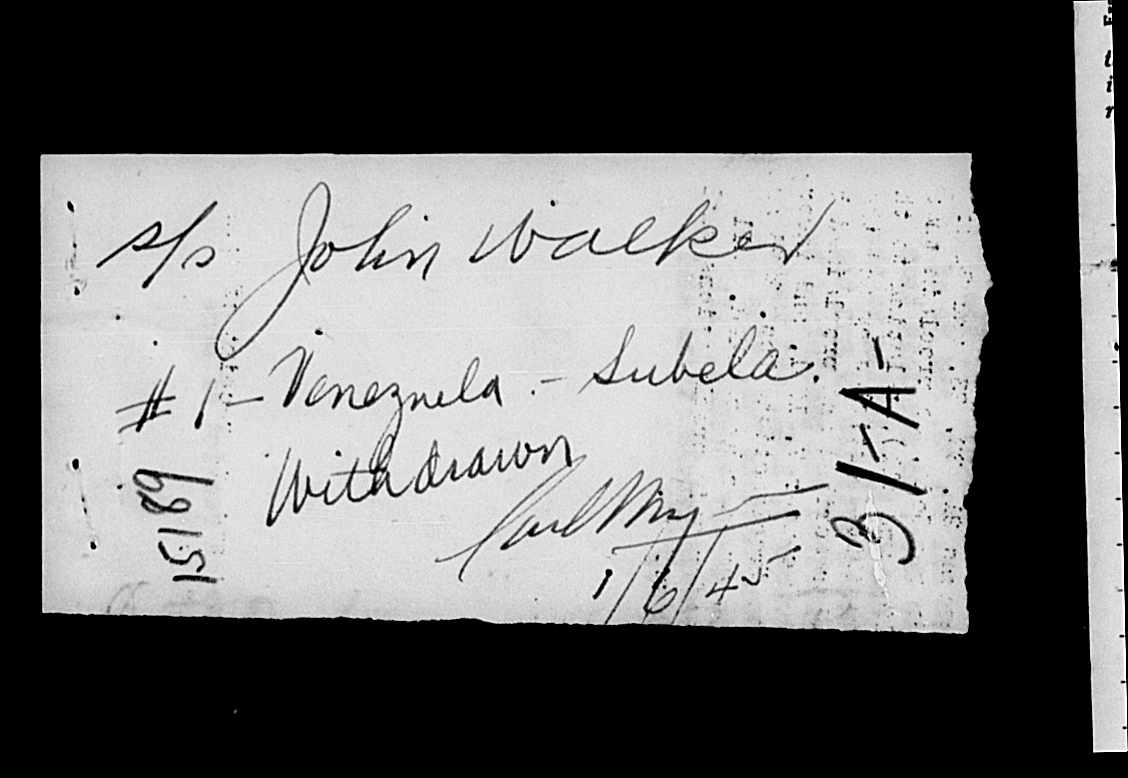 s/s John Walker
#1 - Venezuela. - Subela.
Withdrawn
Carl
1/6/45
15189
3 1-A-